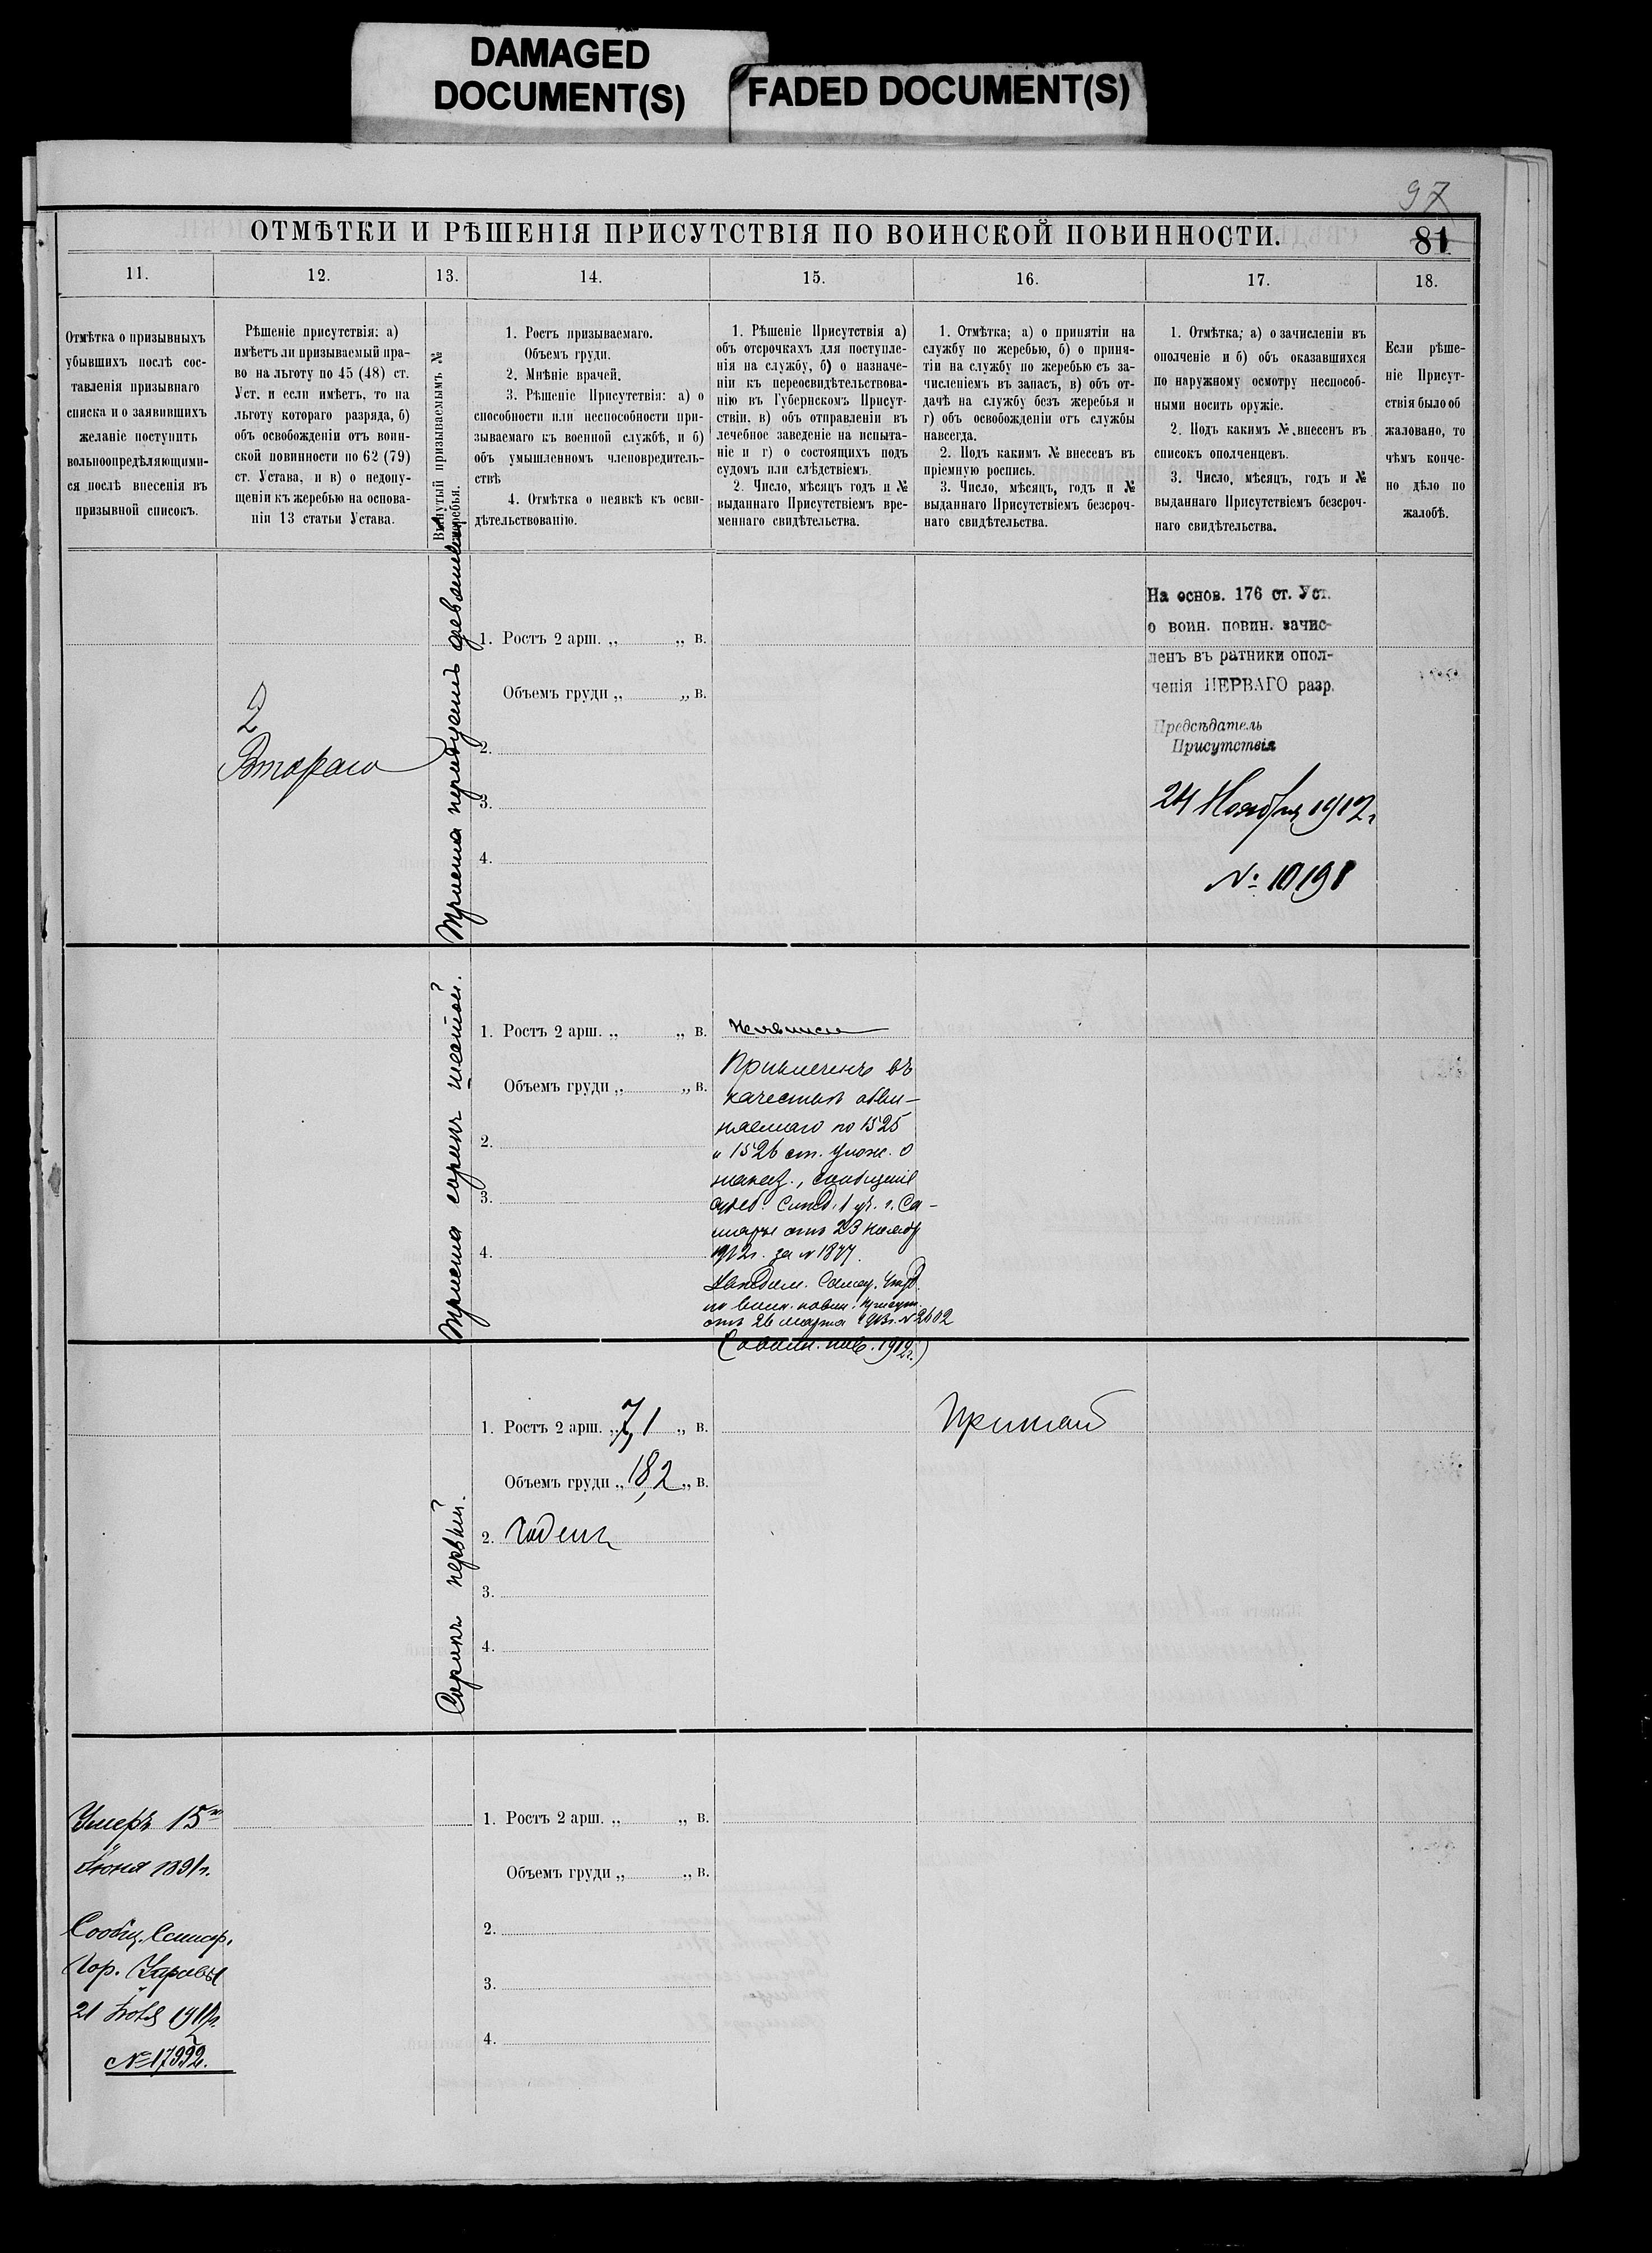 DAMAGED
DOCUMENT(S)
FADED DOCUMENT(S)
97
ОТМѢТКИ И РѢШЕНІЯ ПРИСУТСТВІЯ ПО ВОИНСКОЙ ПОВИННОСТИ.
81
11.
12.
13.
14.
15.
16.
17.
18.
Отмѣтка о призывныхъ
убывшихъ послѣ сос-
тавленія призывнаго
списка и о заявившихъ
желаніе поступить
вольноопредѣляющими-
ся послѣ внесенія въ
призывной списокъ.
Рѣшеніе присутствія: а)
имѣетъ ли призываемый пра-
во на льготу по 45 (48) ст.
Уст. и если имѣетъ, то на
льготу котораго разряда, б)
объ освобожденіи отъ воин-
ской повинности по 62 (79)
ст. Устава, и в) о недопу-
щеніи къ жеребью на основа-
ніи 13 статьи Устава.
Вынутый призываемымъ №
жеребья.
1. Ростъ призываемаго.
Объемъ груди.
2. Мнѣніе врачей.
3. Рѣшеніе Присутствія: а) о
способности или неспособности при-
зываемаго къ военной службѣ, и б)
объ умышленномъ членовредитель-
ствѣ
4. Отмѣтка о неявкѣ къ осви-
дѣтельствованію.
1. Рѣшеніе Присутствія а)
объ отсрочкахъ для поступле-
нія на службу, б) о назначе-
ніи къ переосвидѣтельствова-
нію въ Губернскомъ Присут-
ствіи, в) объ отправленіи въ
лечебное заведеніе на испыта-
ніе и г) о состоящихъ подъ
судомъ или слѣдствіемъ
2. Число, мѣсяцъ годъ и №
выданнаго Присутствіемъ вре-
меннаго свидѣтельства.
1. Отмѣтка; а) о принятіи на
службу по жеребью, б) о приня-
тіи на службу по жеребью съ за-
численіемъ въ запасъ, в) объ от-
дачѣ на службу безъ жеребья и
г) объ освобожденіи отъ службы
навсегда.
2. Подъ какимъ № внесенъ въ
пріемную роспись.
3. Число, мѣсяцъ, годъ и №
выданнаго Присутствіемъ безсроч-
наго свидѣтельства.
1. Отмѣтка; а) о зачисленіи въ
ополченіе и б) объ оказавшихся
по наружному осмотру неспособ-
ными носить оружіе.
2. Подъ какимъ № внесенъ въ
списокъ ополченцевъ.
3. Число, мѣсяцъ, годъ и №
выданнаго Присутствіемъ безсроч-
наго свидѣтельства.
Если рѣше-
ніе Присут-
ствія было об
жаловано, то
чѣмъ конче-
но дѣло по
жалобѣ.
2
Втораго
Триста
1. Ростъ 2 арш. „ „ в.
Объемъ груди „ „ в.
2.
3.
4.
На основ. 176 ст. Уст.
о воин. повин. зачис-
ленъ въ ратники опол-
ченія ПЕРВАГО разр.
Предсѣдатель
Присутствія
24 Ноября 1912г
№ 10198
Триста сорокъ шестой.
1. Ростъ 2 арш. „ „ в.
Объемъ груди „ „ в.
2.
3.
4.
Привлеченъ въ
качествѣ обви-
няемаго по 1525
и 1526 ст. улож. о
наказ., сообщеніе
судеб. слѣд. 1 уч. г. Са-
мары отъ 23 нояб
1912г. за № 1877.
по воин. повин. Присут.
отъ 26 марта 1913г. № 2602
Сорокъ первый.
1. Ростъ 2 арш. „ 7,1 „ в.
Объемъ груди „ 18,2 „ в.
2. Годенъ
3.
4.
Принятъ
Умеръ 15го
Іюня 1891г.
Сообщ. Самар.
Гор. Управы
21 1912г.
№ 17992.
1. Ростъ 2 арш. „ „ в.
Объемъ груди „ „ в.
2.
3.
4.